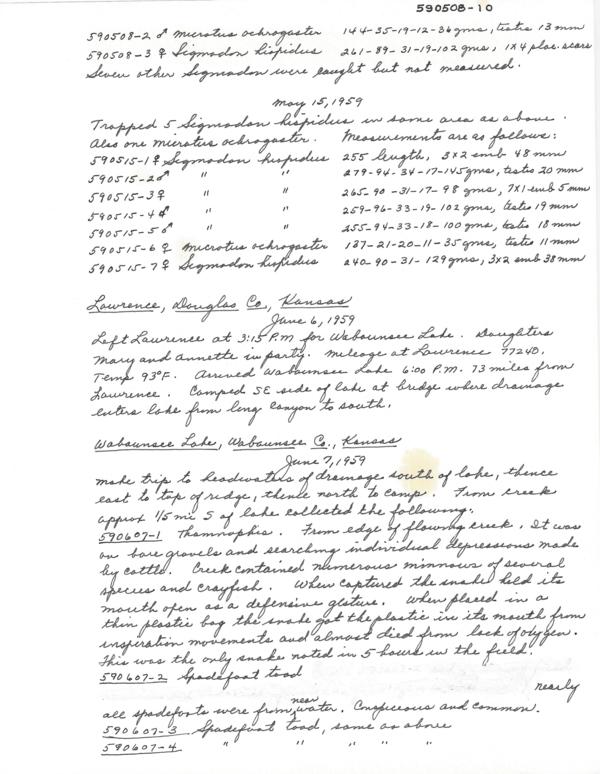 590508-10
590508-2 ♂ Microtus ochrogaster 144-35-19-12-36 gms, testis 13 mm
590508-3 ♀ Sigmodon hispidus 261-89-31-19-102 gms, 1x4 plac. scars
Seven other Sigmodon were caught but not measured.
May 15, 1959
Trapped 5 Sigmodon hispidus in same area as above.
Also one Microtus ochrogaster. Measurements are as follows:
590515-1 ♀ Sigmodon hispidus 255 length, 3x2 emb 48 mm
590515-2 ♂ " " 279-94-34-17-145 gms, testis 20 mm
590515-3 ♀ " " 265-90-31-17-98 gms, 7x1 emb 5 mm
590515-4 ♂ " " 259-96-33-19-102 gms, testis 19 mm
590515-5 ♂ " " 255-94-33-18-100 gms, testis 18 mm
590515-6 ♀ Microtus ochrogaster 137-21-20-11-35 gms, testis 11 mm
590515-7 ♀ Sigmodon hispidus 240-90-31-129 gms, 3x2 emb 38 mm
Lawrence, Douglas Co., Kansas
June 6, 1959
Left Lawrence at 3:15 P.M for Wabaunsee Lake. Daughters
Mary and Annette in party. Mileage at Lawrence 77240.
Temp 93°F. Arrived Wabaunsee Lake 6:00 P.M. 73 miles from
Lawrence. Camped SE side of lake at bridge where drainage
enters lake from long canyon to south.
Wabaunsee Lake, Wabaunsee Co., Kansas
June 7, 1959
Make trip to headwaters of drainage south of lake, thence
east to top of ridge, thence north to camp. From creek
approx 1/5 mi S of lake collected the following:
590607-1 Thamnophis. From edge of flowing creek. It was
on bare gravels and searching individual depressions made
by cattle. Creek contained numerous minnows of several
species and crayfish. When captured the snake held its
mouth open as a defensive gesture. When placed in a
thin plastic bag the snake got the plastic in its mouth from
inspiration movements and almost died from lack of oxygen.
This was the only snake noted in 5 hours in the field.
590607-2 Spadefoot toad
nearly
all spadefoots were from near water. Conspicuous and common.
590607-3 Spadefoot toad, same as above
590607-4 " " " " "